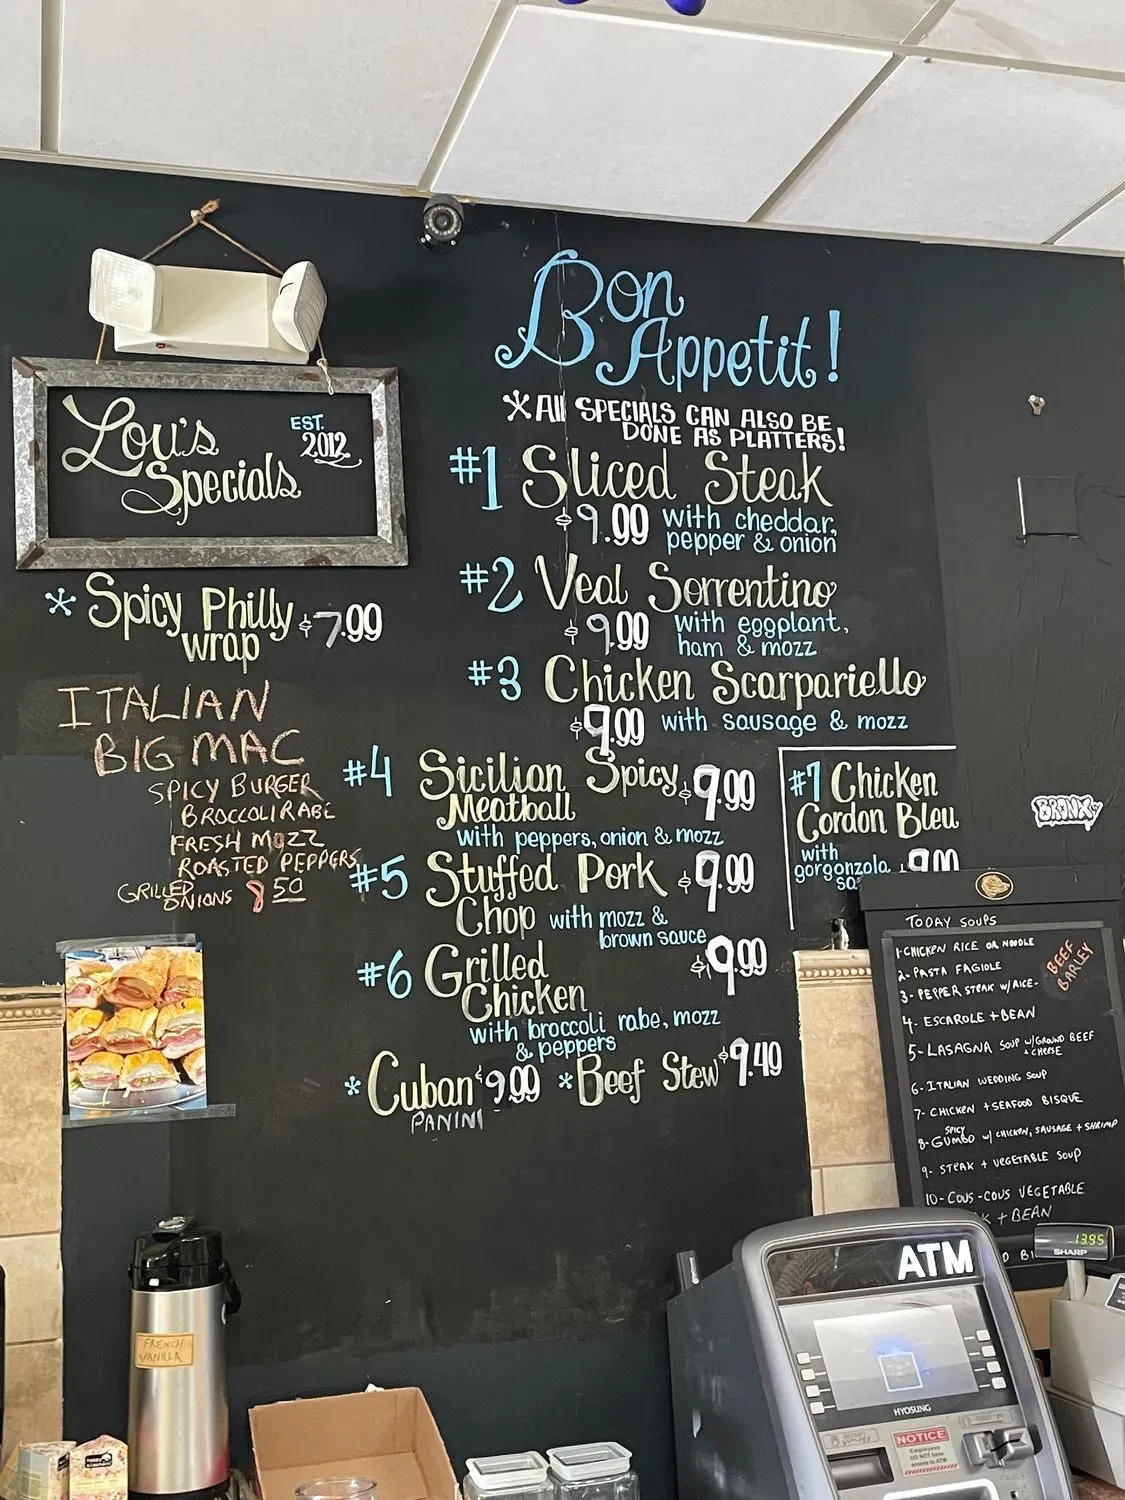 Bon
Appetit!
*All SPECIALS CAN ALSO BE
DONE AS PLATTERS!
Lou's
Specials
EST.
2012
* Spicy Philly
wrap $7.99
ITALIAN
BIG MAC
SPICY BURGER
BROCCOLI RABE
FRESH MOZZ
ROASTED PEPPERS
GRILLED
ONIONS 8 50
#1 Sliced Steak
$9.99 with cheddar,
pepper & onion
#2 Veal Sorrentino
$9.99 with eggplant,
ham & mozz
#3 Chicken Scarpariello
$9.99 with sausage & mozz
#4 Sicilian Spicy $9.99
Meatball
with peppers, onion & mozz
#5 Stuffed Pork $9.99
Chop with mozz &
brown sauce
#6 Grilled $9.99
Chicken
with broccoli rabe, mozz
& peppers
* Cuban $9.99 * Beef Stew $9.49
PANINI
#7 Chicken
Cordon Bleu
with
gorgonzola
BRONX
TODAY SOUPS
1-CHICKEN RICE OR NOODLE
2-PASTA FAGIOLE
3-PEPPER STEAK W/RICE-
BEEF
BARLEY
4-ESCAROLE + BEAN
5-LASAGNA SOUP W/GROUND BEEF
+ CHEESE
6-ITALIAN WEDDING SOUP
7-CHICKEN + SEAFOOD BISQUE
8-SPICY GUMBO W/ CHICKEN, SAUSAGE + SHRIMP
9-STEAK + VEGETABLE SOUP
10-COUS-COUS VEGETABLE
+ BEAN
13.95
SHARP
ATM
HYOSUNG
NOTICE
Employees
DO NOT have
access to ATM
FRENCH
VANILLA